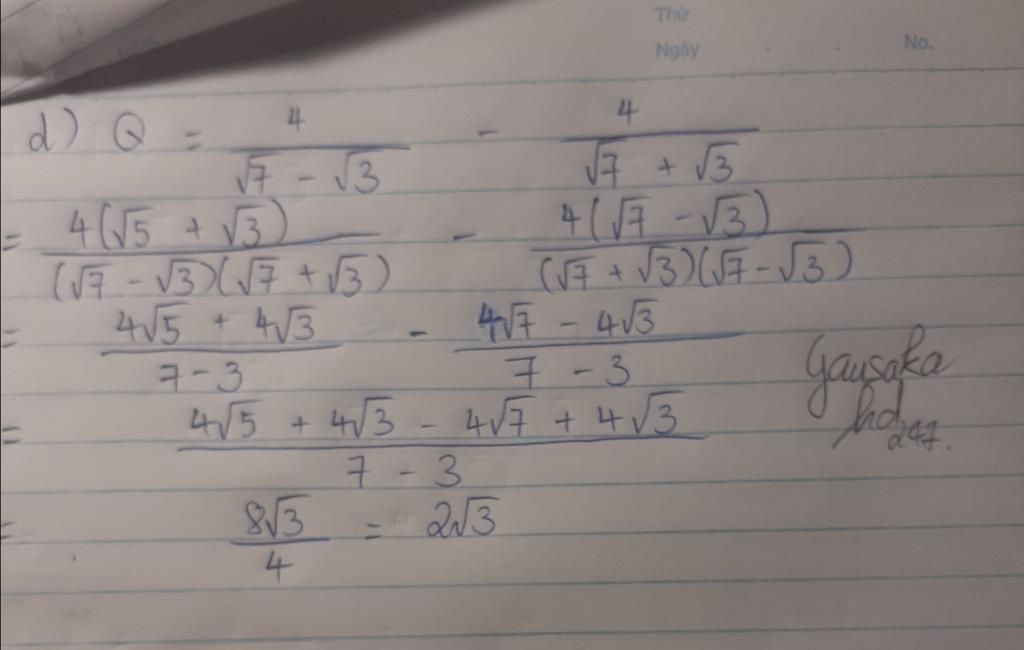 Thứ
Ngày No.
d) Q = 4/(√7 - √3) - 4/(√7 + √3)
= 4(√5 + √3)/((√7 - √3)(√7 + √3)) - 4(√7 - √3)/((√7 + √3)(√7 - √3))
= (4√5 + 4√3)/(7 - 3) - (4√7 - 4√3)/(7 - 3)
= (4√5 + 4√3 - 4√7 + 4√3)/(7 - 3)
= 8√3/4 = 2√3
Gausaka
hd247.